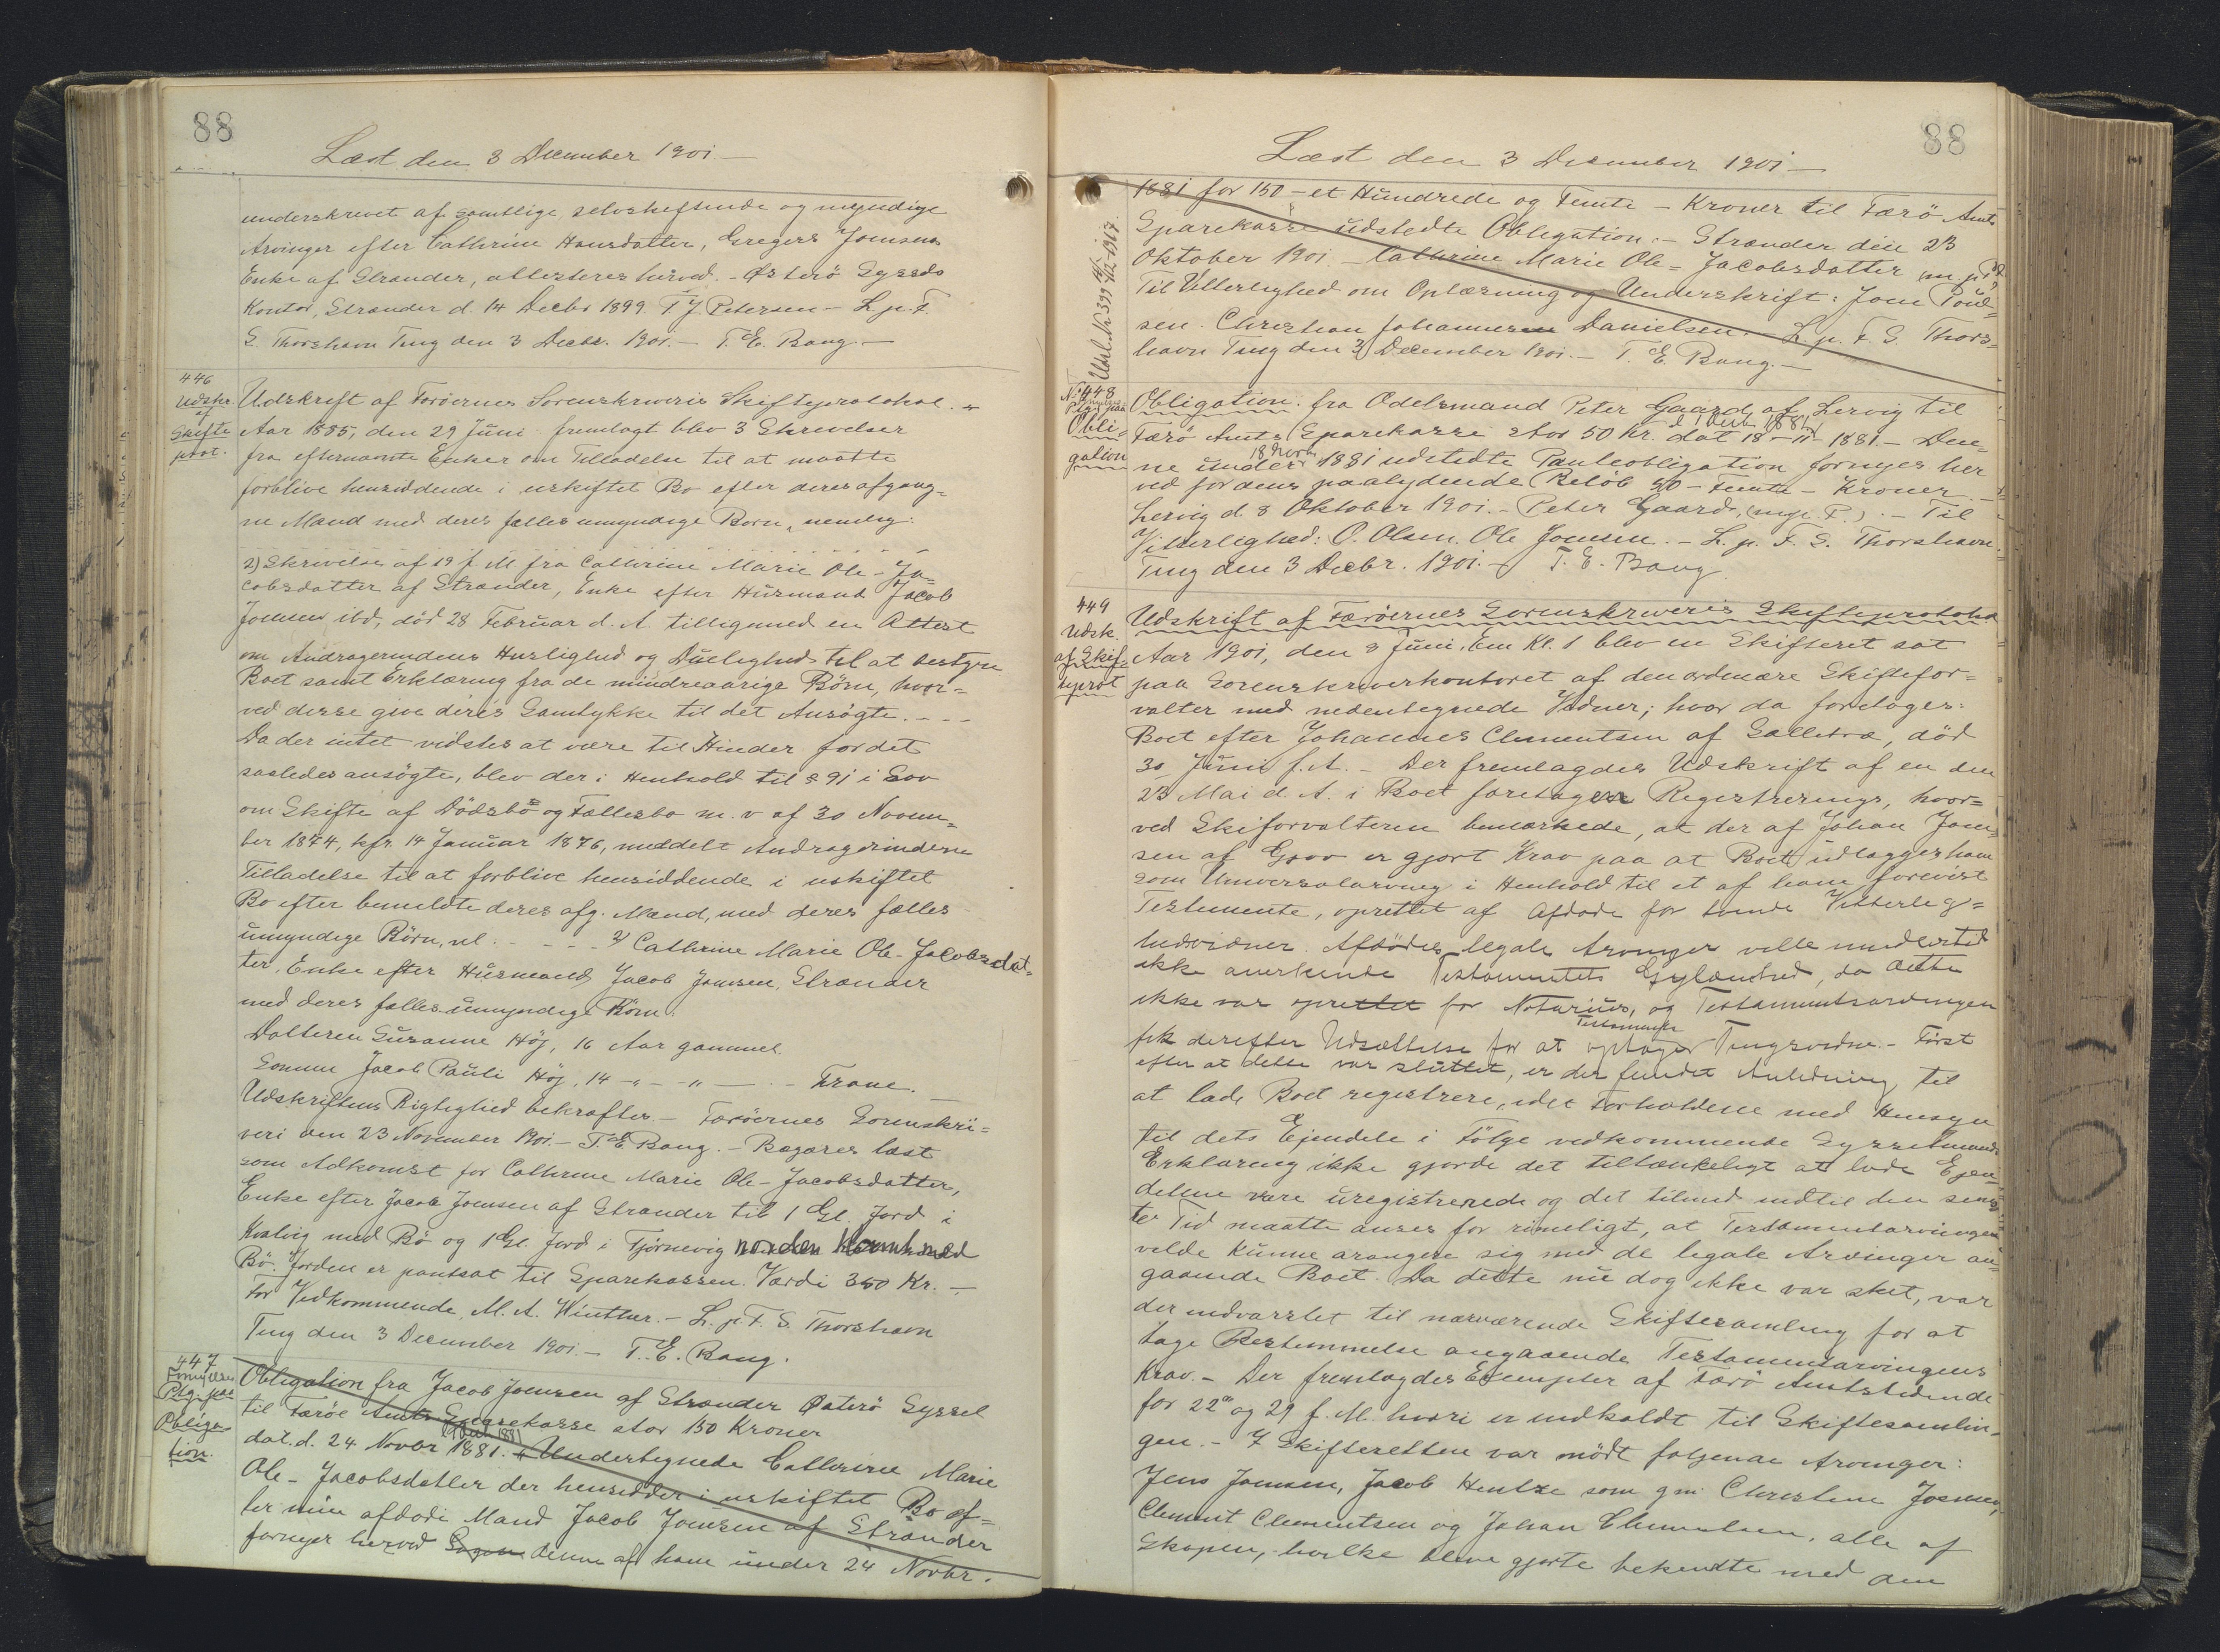 88
Læst den 3 December 1901 —
underskrevet af samtlige, selvskiftende og myndige
Arvinger efter Cathrine Hansdatter, Gregers Joensens
Enke af Strænder, attesteres herved. - Østerö Syssels
Kontor, Strænder d. 14 Decbr 1899. T. J. Petersen - L. p. F.
S. Thorshavn Ting den 3 Decbr. 1901. - T. E. Bang. -
446
Udskr.
af
Skifte
prot.
Udskrift af Færöernes Sorenskriveris Skifteprotokol.
Aar 1885, den 29 Juni fremlagt blev 3 Skrivelser
fra efternævnte Enker om Tilladelse til at maatte
forblive hensiddende i uskiftet Bo efter deres afgang=
ne Mænd med deres fælles umyndige Børn, nemlig:
2) Skrivelse af 19 f. M fra Cathrine Marie Ole - Ja=
cobsdatter af Strænder, Enke efter Husmand Jacob
Joensen ibd, död 28 Februar d. A. tilligemed en Attest
om Andragerindens Huslighed og Duelighed til at bestyre
Boet samt Erklæring fra de mindreaarige Börn, hvor=
ved disse give deres Samtykke til det Ansögte. - - -
Da der intet vidstes at være til Hinder for det
saaledes ansögte, blev der i Henhold til § 91 i Lov
om Skifte af Dödsbö og Fællesbo m. v af 30 Novem=
ber 1874, kfr. 14 Januar 1876, meddelt Andragerinderne
Tilladelse til at forblive hensiddende i uskiftet
Bo efter bemeldte deres afg. Mænd, med deres fælles
umyndige Börn, nl: - - - - 2) Cathrine Marie Ole - Jacobsdat=
ter, Enke efter Husmand Jacob Joensen, Strænder
med deres fælles umyndige Börn:
Datteren Susanne Höj, 16 Aar gammel.
Sonnen Jacob Pauli Höj, 14 -"- -"- — . - Trane. —
Udskriftens Rigtighed bekræftes - Færöernes Sorenskri=
veri den 23 November 1901. - T. E. Bang. - Begæres læst
som Adkomst for Cathrine Marie Ole - Jacobsdatter,
Enke efter Jacob Joensen af Strænder til 1 Gl. Jord i
Kvalvig med Bö og 1 Gl. Jord i Tjørnevig norden med
Bö. Jorden er pantsat til Sparekassen. Værdi 350 Kr. —
For Vedkommende, M. A. Winther. - L. p. F. S. Thorshavn
Ting den 3 December 1901. - T. E. Bang.
447
Fornyelses
Ptg. paa
Obliga-
tion.
Obligation fra Jacob Joensen af Strænder Østerö Syssel
til Færöe Amts Sparekasse stor 150 Kroner
dat. d. 24 Novbr 1881. Undertegnede Cathrine Marie
Ole - Jacobsdatter der hensidder i uskiftet Bo ef=
ter min afdöde Mand Jacob Joensen af Strænder
fornyer herved denne af ham under 24 Novbr.
88
Læst den 3 December 1901 —
1881 for 150 - et Hundrede og Femti - Kroner til Færö Amts
Sparekasse udstedte Obligation. - Strænder den 23
Oktober 1901 - Cathrine Marie Ole = Jacobsdatter m. p. P.
Til Vitterlighed om Oplæsning og Underskrift: Joen Poul=
sen. Christian Johannesen Danielsen. - L. p. F. S. Thors=
havn Ting den 3 December 1901. - T. E. Bang. -
No 448
Ptg. paa
Obli=
gation
Obligation fra Odelsmand Peter Gaard, af Lervig til
Færö Amts Sparekasse stor 50 Kr. dat 18 - 11 - 1881. - Den=
18 Novbr
ne under 1881 udstedte Panteobligation fornyes her
ved for dens paalydende Belöb 50 - Femti - Kroner. -
Lervig d. 8 Oktober 1901. - Peter Gaard, (m. p. P.) . - Til
Vitterlighed: O. Olsen. Ole Joensen. - L. p. F. S. Thorshavn
Ting den 3 Decbr. 1901. - T. E. Bang
449
Udsk.
af Skif=
teprot
Udskrift af Færöernes Sorenskriveris Skifteprotokol
Aar 1901, den 8 Juni, Em Kl. 1 blev en Skifteret sat
paa Sorenskriverkontoret af den ordinære Skiftefor=
valter med nedentegnede Vidner; hvor da foretages:
Boet efter Johannes Clementsen af Salletræ, död
30 Juni f. A. - Der fremlagdes Udskrift af en den
23 Mai d. A. i Boet foretagen Registrering, hvor=
ved Skifforvalteren bemærkede, at der af Johan Joen=
sen af Gjov er gjort Krav paa at Boet udlægges ham
som Universalarving i Henhold til et af ham forevist
Testemente, oprettet af Afdöde for tvende Vitterlig=
hedsvidner. Afdödes legale Arvinger ville imidlertid
ikke anerkende Testamentets Gyldighed, da dette
ikke var oprettet for Notarius, og Testamentsarvingen
Testamente
fik derefter Udsættelse for at optage Tingsvidne. - Först
efter at dette var sluttet, er der fundet Anledning til
at lade Boet registrere, idet Forholdene med Hensyn
til dets Ejendele i Fölge vedkommende Sysselmands
Erklæring ikke gjorde det tiltænkeligt at lade Ejen=
delene være uregistrerede og det tilmed indtil den senes=
te Tid maatte anses for rimeligt, at Testamentarvingen
vilde kunne arangere sig med de legale Arvinger an=
gaaende Boet. Da dette nu dog ikke var sket, var
der indvarslet til nærværende Skiftesamling for at
tage Bestemmelse angaaende Testamentarvingens
Krav. - Der fremlagdes Exempler af Færö Amtstidende
for 22de og 29 f. M. hvori er indkaldt til Skiftesamlin=
gen. - I Skifteretten var mödt fölgende Arvinger:
Jens Joensen, Jacob Hentze som gm: Christine Joensen,
Clement Clementsen og Johan Clementsen, alle af
Skopen, hvilke bleve gjorte bekendte med den